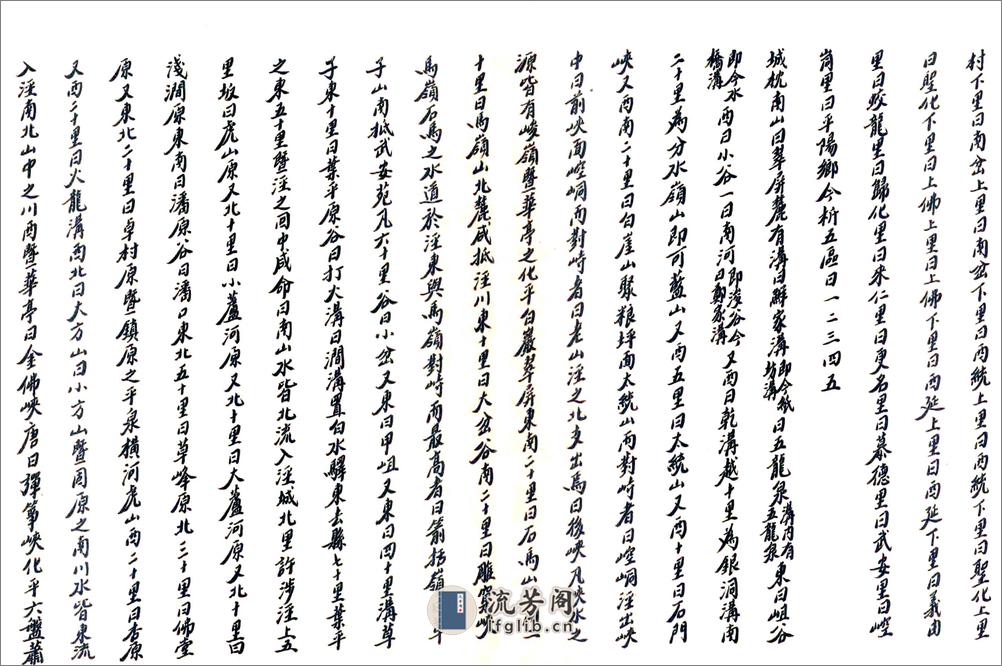 村下里曰南岔上里曰南岔下里曰西統上里曰西統下里曰聖化上里
曰聖化下里曰上佛上里曰上佛下里曰西延上里曰西延下里曰義由
里曰蛟龍里曰歸化里曰米仁里曰更名里曰慕德里曰武安里曰崆
峝里曰平陽鄉今析五區曰一二三四五
城枕南山曰翠屏麓有溝曰解家溝即今紙坊溝曰五龍泉溝內有五龍泉東曰岨谷
即今水橋溝西曰小谷一曰南河即淩谷今曰鄭家溝又西曰乾溝越十里為銀洞溝南
二十里為分水嶺山即可藍山又西五里曰太統山又西十里曰石門
峽又西南二十里曰白崖山聚粮坪面太統山而對峙者曰崆峒涇出峽
中曰前峽面崆峒而對峙者曰老山涇之北支出焉曰後峽凡峽水之
源皆有峻嶺暨華亭之化平白巖翠屏東南二十里曰石馬山
十里曰馬嶺山北麓咸抵涇川東十里曰大岔谷南二十里曰雕窠峽
馬嶺石馬之水道於涇東與馬嶺對峙而最高者曰箭括嶺
子山南抵武安苑凡六十里谷曰小岔又東曰甲岨又東曰四十里溝草
子東十里曰葉平原谷曰打火溝曰澗溝置白水驛東去縣七十里葉平
之東五十里暨涇之回中咸命曰南山水皆北流入涇城北里許涉涇上五
里坂曰虎山原又北十里曰小蘆河原又北十里曰大蘆河原又北十里曰
淺澗原東南曰潘原谷曰潘口東北五十里曰草峰原北三十里曰佛堂
原又東北二十里曰卓村原暨鎮原之平泉橫河虎山西二十里曰杏原
又西二十里曰火龍溝西北曰大方山曰小方山暨固原之南川水皆東流
入涇南北山中之川西暨華亭曰金佛峽唐曰彈箏峽化平六盤蕭
流芳阁
lfglib.cn